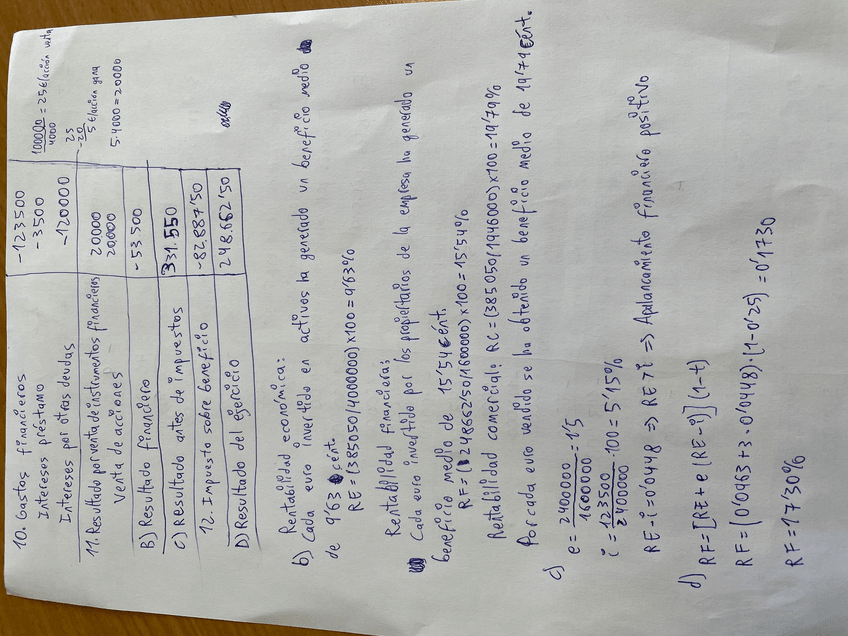 10. Gastos financieros -123500
Intereses préstamo -3500
Intereses por otras deudas -120000
100000/4000 = 25€/acción venta
25
-20
5 €/acción gana
5·4000 = 20000
11. Resultado por venta de instrumentos financieros 20000
Venta de acciones 20000
B) Resultado financiero -53.500
C) Resultado antes de impuestos 331.550
12. Impuesto sobre beneficio -82.887'50
D) Resultado del ejercicio 248.662'50
Rentabilidad económica:
b) Cada euro invertido en activos ha generado un beneficio medio
de 9'63 cént
RE = (385050/4000000) x 100 = 9'63%
Rentabilidad financiera:
Cada euro invertido por los propietarios de la empresa ha generado un
beneficio medio de 15'54 cént.
RF = (248662'50/1600000) x 100 = 15'54%
Rentabilidad comercial: RC = (385050/1946000) x 100 = 19'79%
Por cada euro vendido se ha obtenido un beneficio medio de 19'79 cént.
c) e = 2400000/1600000 = 1'5
i = 123500/2400000 · 100 = 5'15%
RE - i = 0'0448 ⇒ RE > i ⇒ Apalancamiento financiero positivo
d) RF = [RE + e (RE - i)] (1-t)
RF = (0'0963 + 3 · 0'0448) · (1 - 0'25) = 0'1730
RF = 17'30%